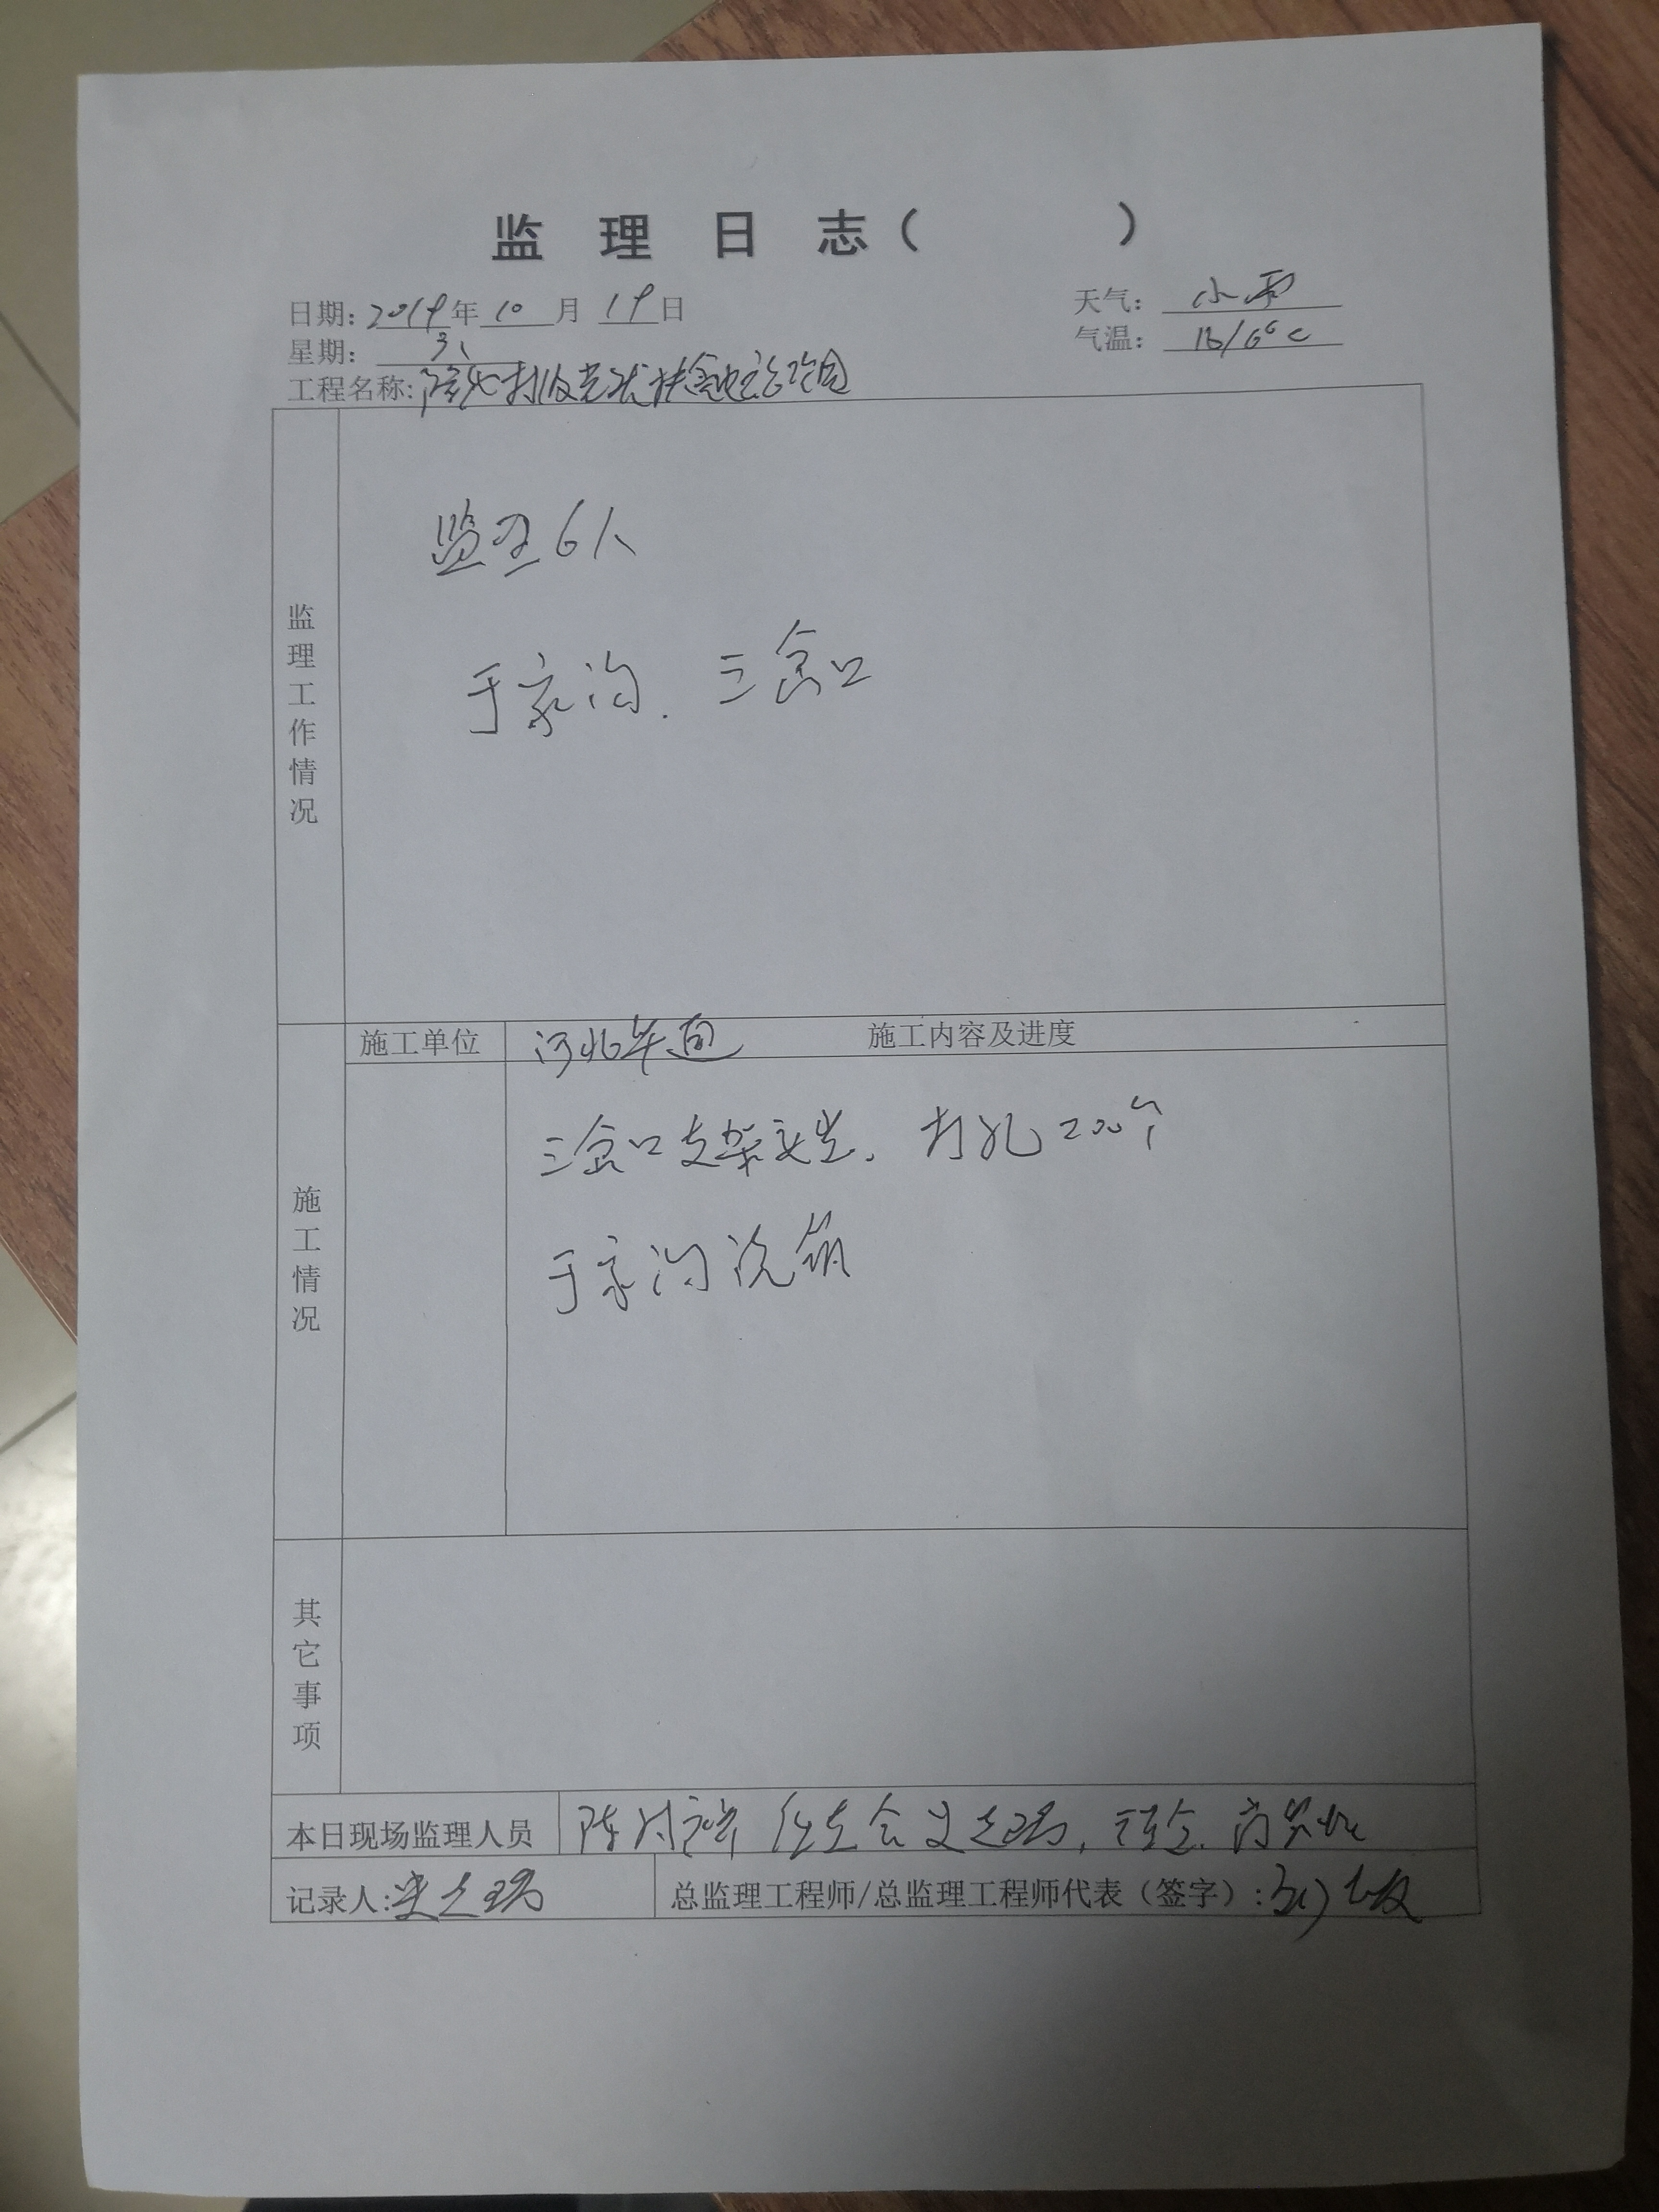 监理日志（ ）
日期：2019年10月19日 天气：小雨
星期：六 气温：16/6℃
工程名称：隆化村级光伏扶贫电站项目
监理工作情况
监理6人
于家沟．三岔口
施工单位 河北 施工内容及进度
施工情况
三岔口支架安装．打孔200个
于家沟浇筑
其它事项
本日现场监理人员
记录人：
总监理工程师/总监理工程师代表（签字）：